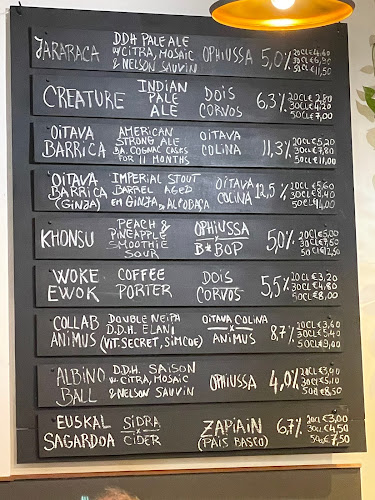 JARARACA DDH PALE ALE W/CITRA, MOSAIC & NELSON SAUVIN OPHIUSSA 5,0% 20CL €4,60 30CL €6,90 50CL €11,50
CREATURE INDIAN PALE ALE DOIS CORVOS 6,3% 20CL €2,80 30CL €4,20 50CL €7,00
OITAVA BARRICA AMERICAN STRONG ALE BA COGNAC CASKS FOR 11 MONTHS OITAVA COLINA 11,3% 20CL €5,20 30CL €7,80 50CL €11,00
OITAVA BARRICA (GINJA) IMPERIAL STOUT BARREL AGED EM GINJA D'ALCOBAÇA OITAVA COLINA 12,5% 20CL €5,60 30CL €8,40 50CL
KHONSU PEACH & PINEAPPLE SMOOTHIE SOUR OPHIUSSA x B*BOP 5,0% 20CL €5,00 30CL €7,50 50CL €12,50
WOKE EWOK COFFEE PORTER DOIS CORVOS 5,5% 20CL €3,20 30CL €4,80 50CL €8,00
COLLAB ANIMUS DOUBLE NEIPA D.D.H. ELANI (VIT.SECRET, SIMCOE) OITAVA COLINA x ANIMUS 8,7% 20CL €3,60 30CL €5,40 50CL €9,00
ALBINO BALL D.D.H. SAISON W/CITRA, MOSAIC & NELSON SAUVIN OPHIUSSA 4,0% 20CL €3,40 30CL €5,10 50CL €8,50
EUSKAL SAGARDOA SIDRA x CIDER ZAPIAIN (PAÍS BASCO) 6,7% 20CL €3,00 30CL €4,50 50CL €7,50